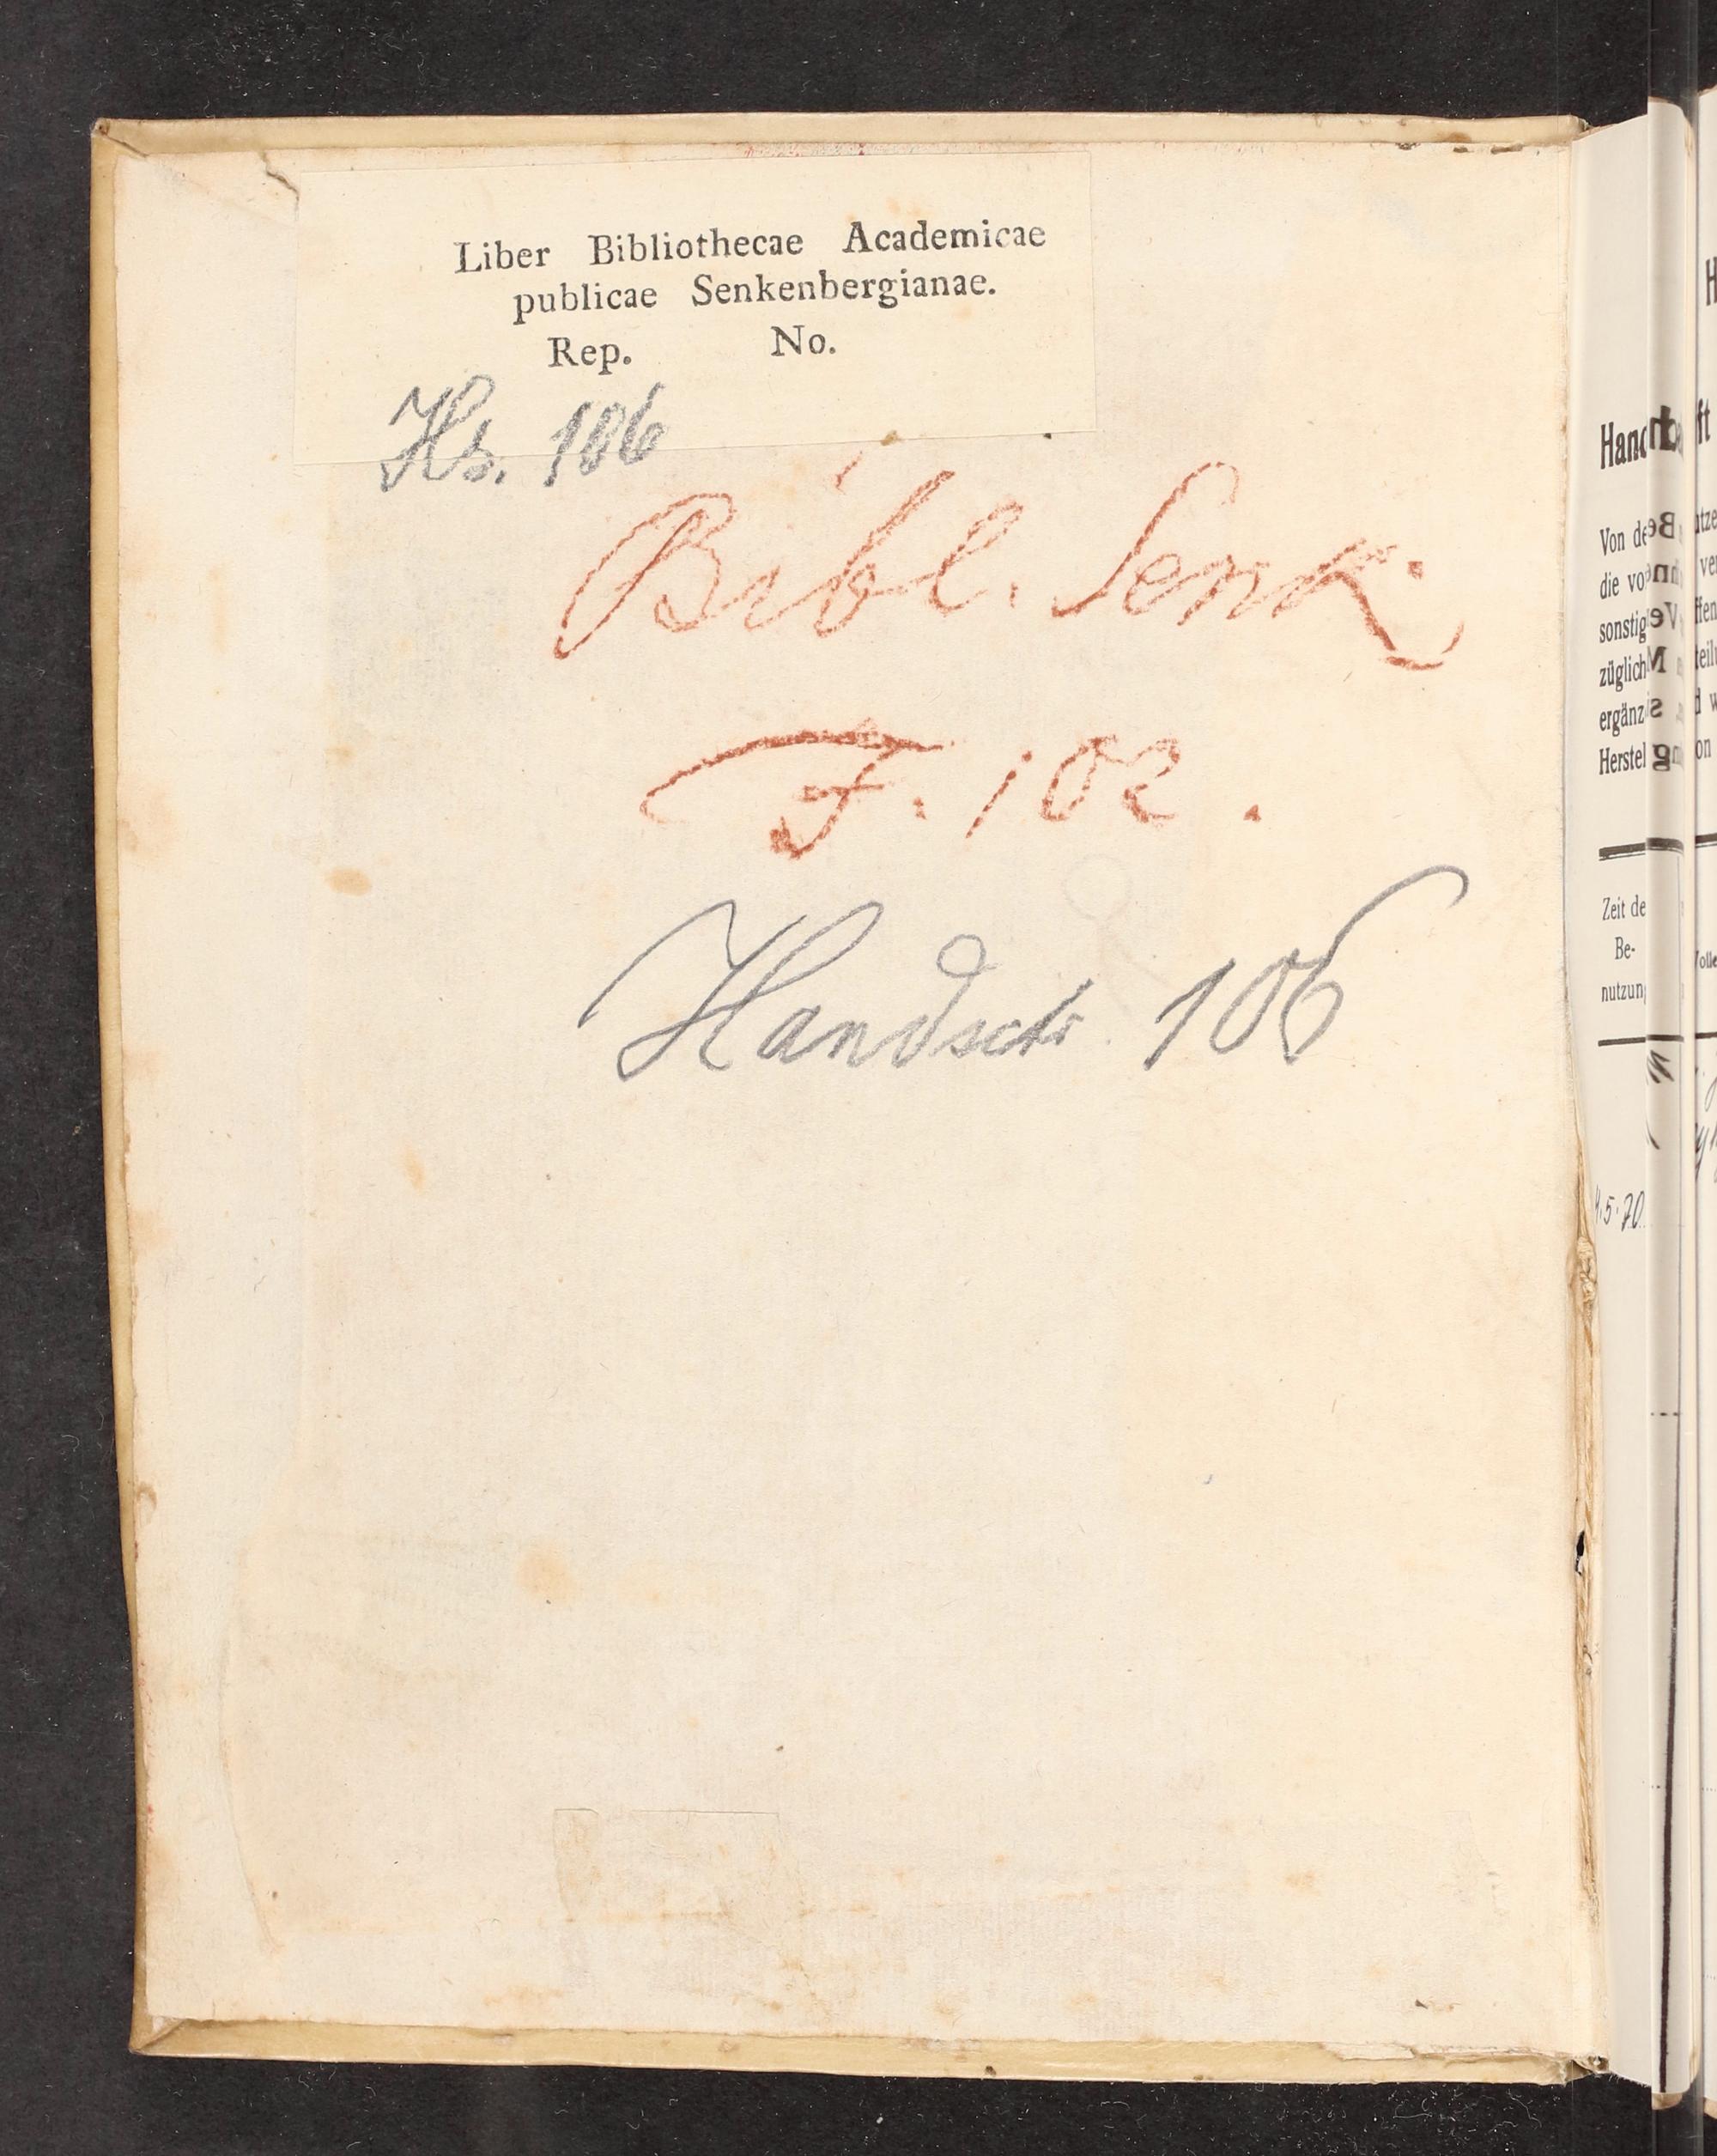 Liber Bibliothecae Academicae
publicae Senkenbergianae.
Rep. No.
Hs. 106
Bibl. Senk.
F. 102.
Handschr. 106
Von de
die vo
sonstig
züglich
ergänz
Herstel
Zeit de
Be-
nutzun
.5.70